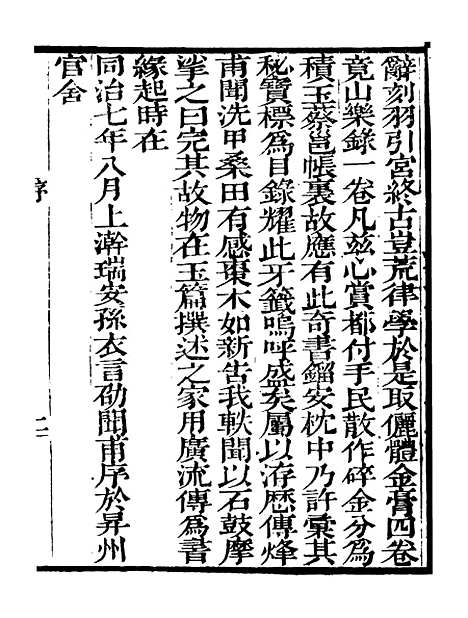 辭刻羽引宮終古豈荒律學於是取儷體金膏四卷
竟山樂錄一卷凡茲心賞都付手民散作碎金分為
積玉蔡邕帳裏故應有此奇書鎦安枕中乃許彙其
秘寶標為目錄耀此牙籤嗚呼盛矣屬以洊歷傳烽
甫聞洗甲桑田有感棗木如新告我軼聞以石鼓摩
挲之日完其故物在玉篇撰述之家用廣流傳為書
緣起時在
同治七年八月上澣瑞安孫衣言劭聞甫序於昇州
官舍
序
二